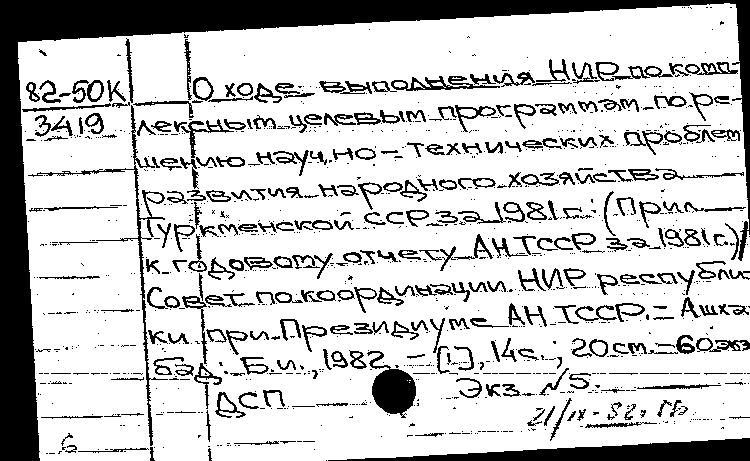 82-50К О ходе выполнения НИР по комп-
3419 лексным целевым программам по ре-
шению научно-технических проблем
развития народного хозяйства
Туркменской ССР за 1981 г.: (Прил.
к годовому отчету АН ТССР за 1981 г.)/
Совет по координации НИР республи-
ки при Президиуме АН ТССР. - Ашха-
бад: Б.и., 1982. - [1], 14с.; 20 см. - 60 экз
ДСП Экз. №5.
21/IX-82г.
6